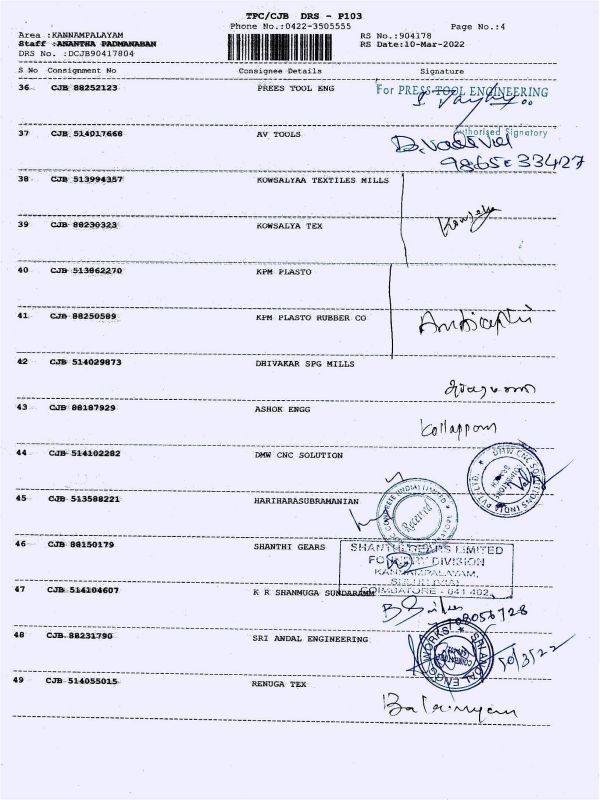 TPC/CJB DRS - P103
Phone No.:0422-3505555 Page No.:4
Area :KANNAMPALAYAM RS No.:904178
Staff :ANANTHA PADMANABAN RS Date:10-Mar-2022
DRS No. :DCJB90417804
S No Consignment No Consignee Details Signature
36 CJB 88252123 PREES TOOL ENG For PRESS TOOL ENGINEERING
Authorised Signatory
37 CJB 514017668 AV TOOLS
38 CJB 513994357 KOWSALYAA TEXTILES MILLS
39 CJB 88230323 KOWSALYA TEX
40 CJB 513862270 KPM PLASTO
41 CJB 88250589 KPM PLASTO RUBBER CO
42 CJB 514029873 DHIVAKAR SPG MILLS
43 CJB 88187929 ASHOK ENGG
44 CJB 514102282 DMW CNC SOLUTION
DMW CNC SOLUTIONS INDIA PVT LTD
45 CJB 513588221 HARIHARASUBRAMANIAN
Received
46 CJB 88150179 SHANTHI GEARS
SHANTHI GEARS LIMITED
FOUNDRY DIVISION
KANNAMPALAYAM,
SULUR (VIA)
COIMBATORE - 641 402.
47 CJB 514104607 K R SHANMUGA SUNDARAMM
48 CJB 88231790 SRI ANDAL ENGINEERING
SRI ANDAL ENGG WORKS
49 CJB 514055015 RENUGA TEX